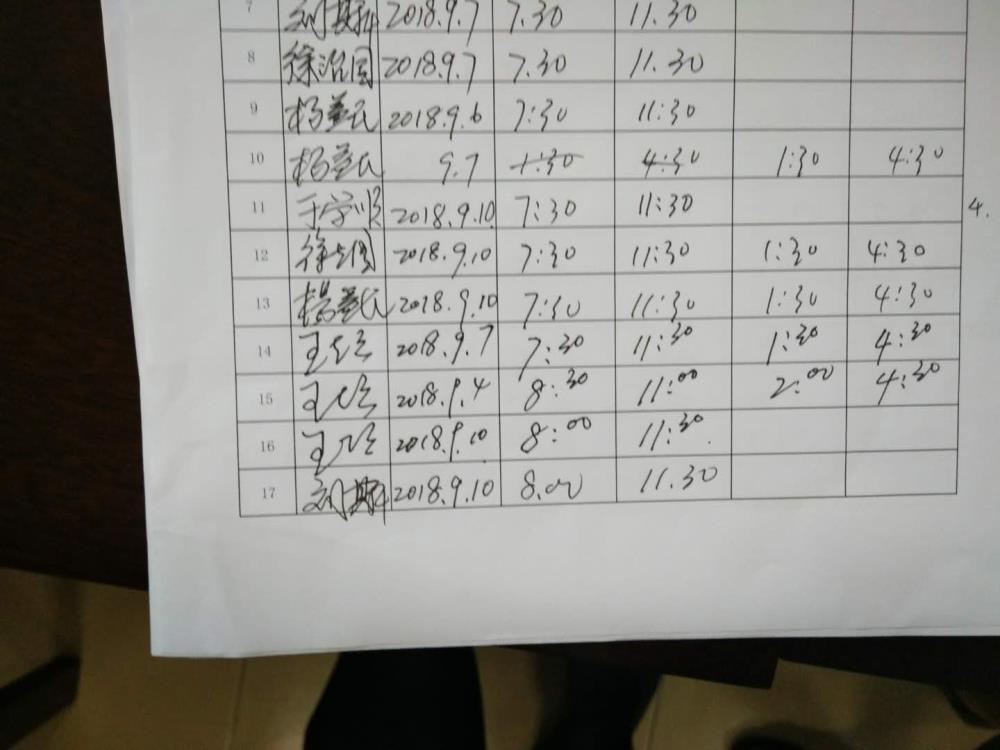 7 刘斯 2018.9.7 7.30 11.30
8 徐治国 2018.9.7 7.30 11.30
9 杨 民 2018.9.6 7:30 11:30
10 杨 民 9.7 1:30 4:30 1:30 4:30
11 于学顺 2018.9.10 7:30 11:30
4.
12 徐 国 2018.9.10 7:30 11:30 1:30 4:30
13 杨 民 2018.9.10 7:30 11:30 1:30 4:30
14 王 2018.9.7 7:30 11:30 1:30 4:30
15 王 2018.9.4 8:30 11:00 2:00 4:30
16 王 2018.9.10 8:00 11:30
17 刘斯 2018.9.10 8.00 11.30